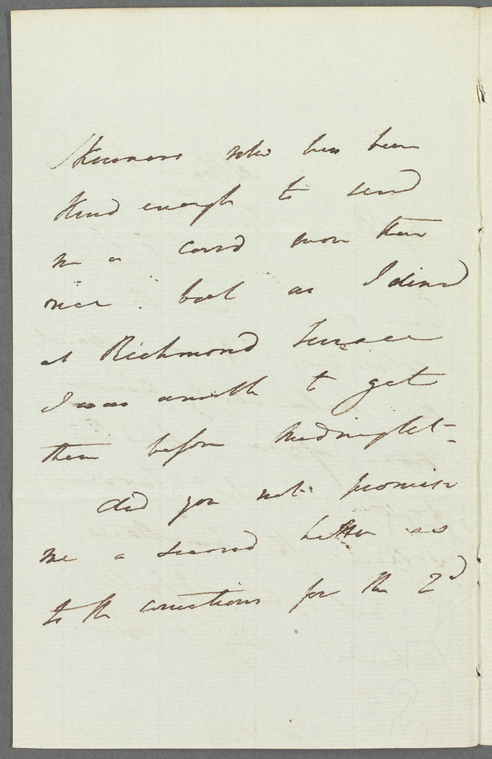 who has been
kind enough to send
me a card more than
once. but as I dined
at Richmond Terrace
I was unable to get
there before midnight -
did you not promise
me a second letter as
to the corrections for the 2d